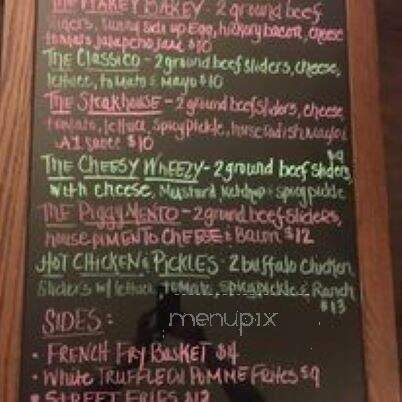 THE WAKEY BAKEY - 2 ground beef
sliders, sunny side up Egg, hickory bacon, cheese
tomato jalapeño jam $10
THE CLASSICO - 2 ground beef sliders, cheese,
lettuce, tomato & mayo $10
THE Steakhouse - 2 ground beef sliders, cheese,
tomato, lettuce, spicy pickle, horseradish mayo &
A1 sauce $10
THE CHEESY WHEEZY - 2 ground beef sliders
$9
with cheese, mustard, ketchup & spicy pickle
THE PIGGY MENTO - 2 ground beef sliders,
house PIMENTO CHEESE & Bacon $12
HOT CHICKEN & PICKLES - 2 buffalo chicken
sliders w/ lettuce, tomato, spicy pickle & Ranch
$13
menupix
SIDES:
• FRENCH FRY BASKET $4
• White TRUFFLE OIL POMME Frites $9
• STREET FRIES $12